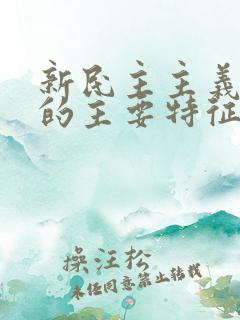 新民主主义
的主要特征
操汪松
未经同意禁止转载